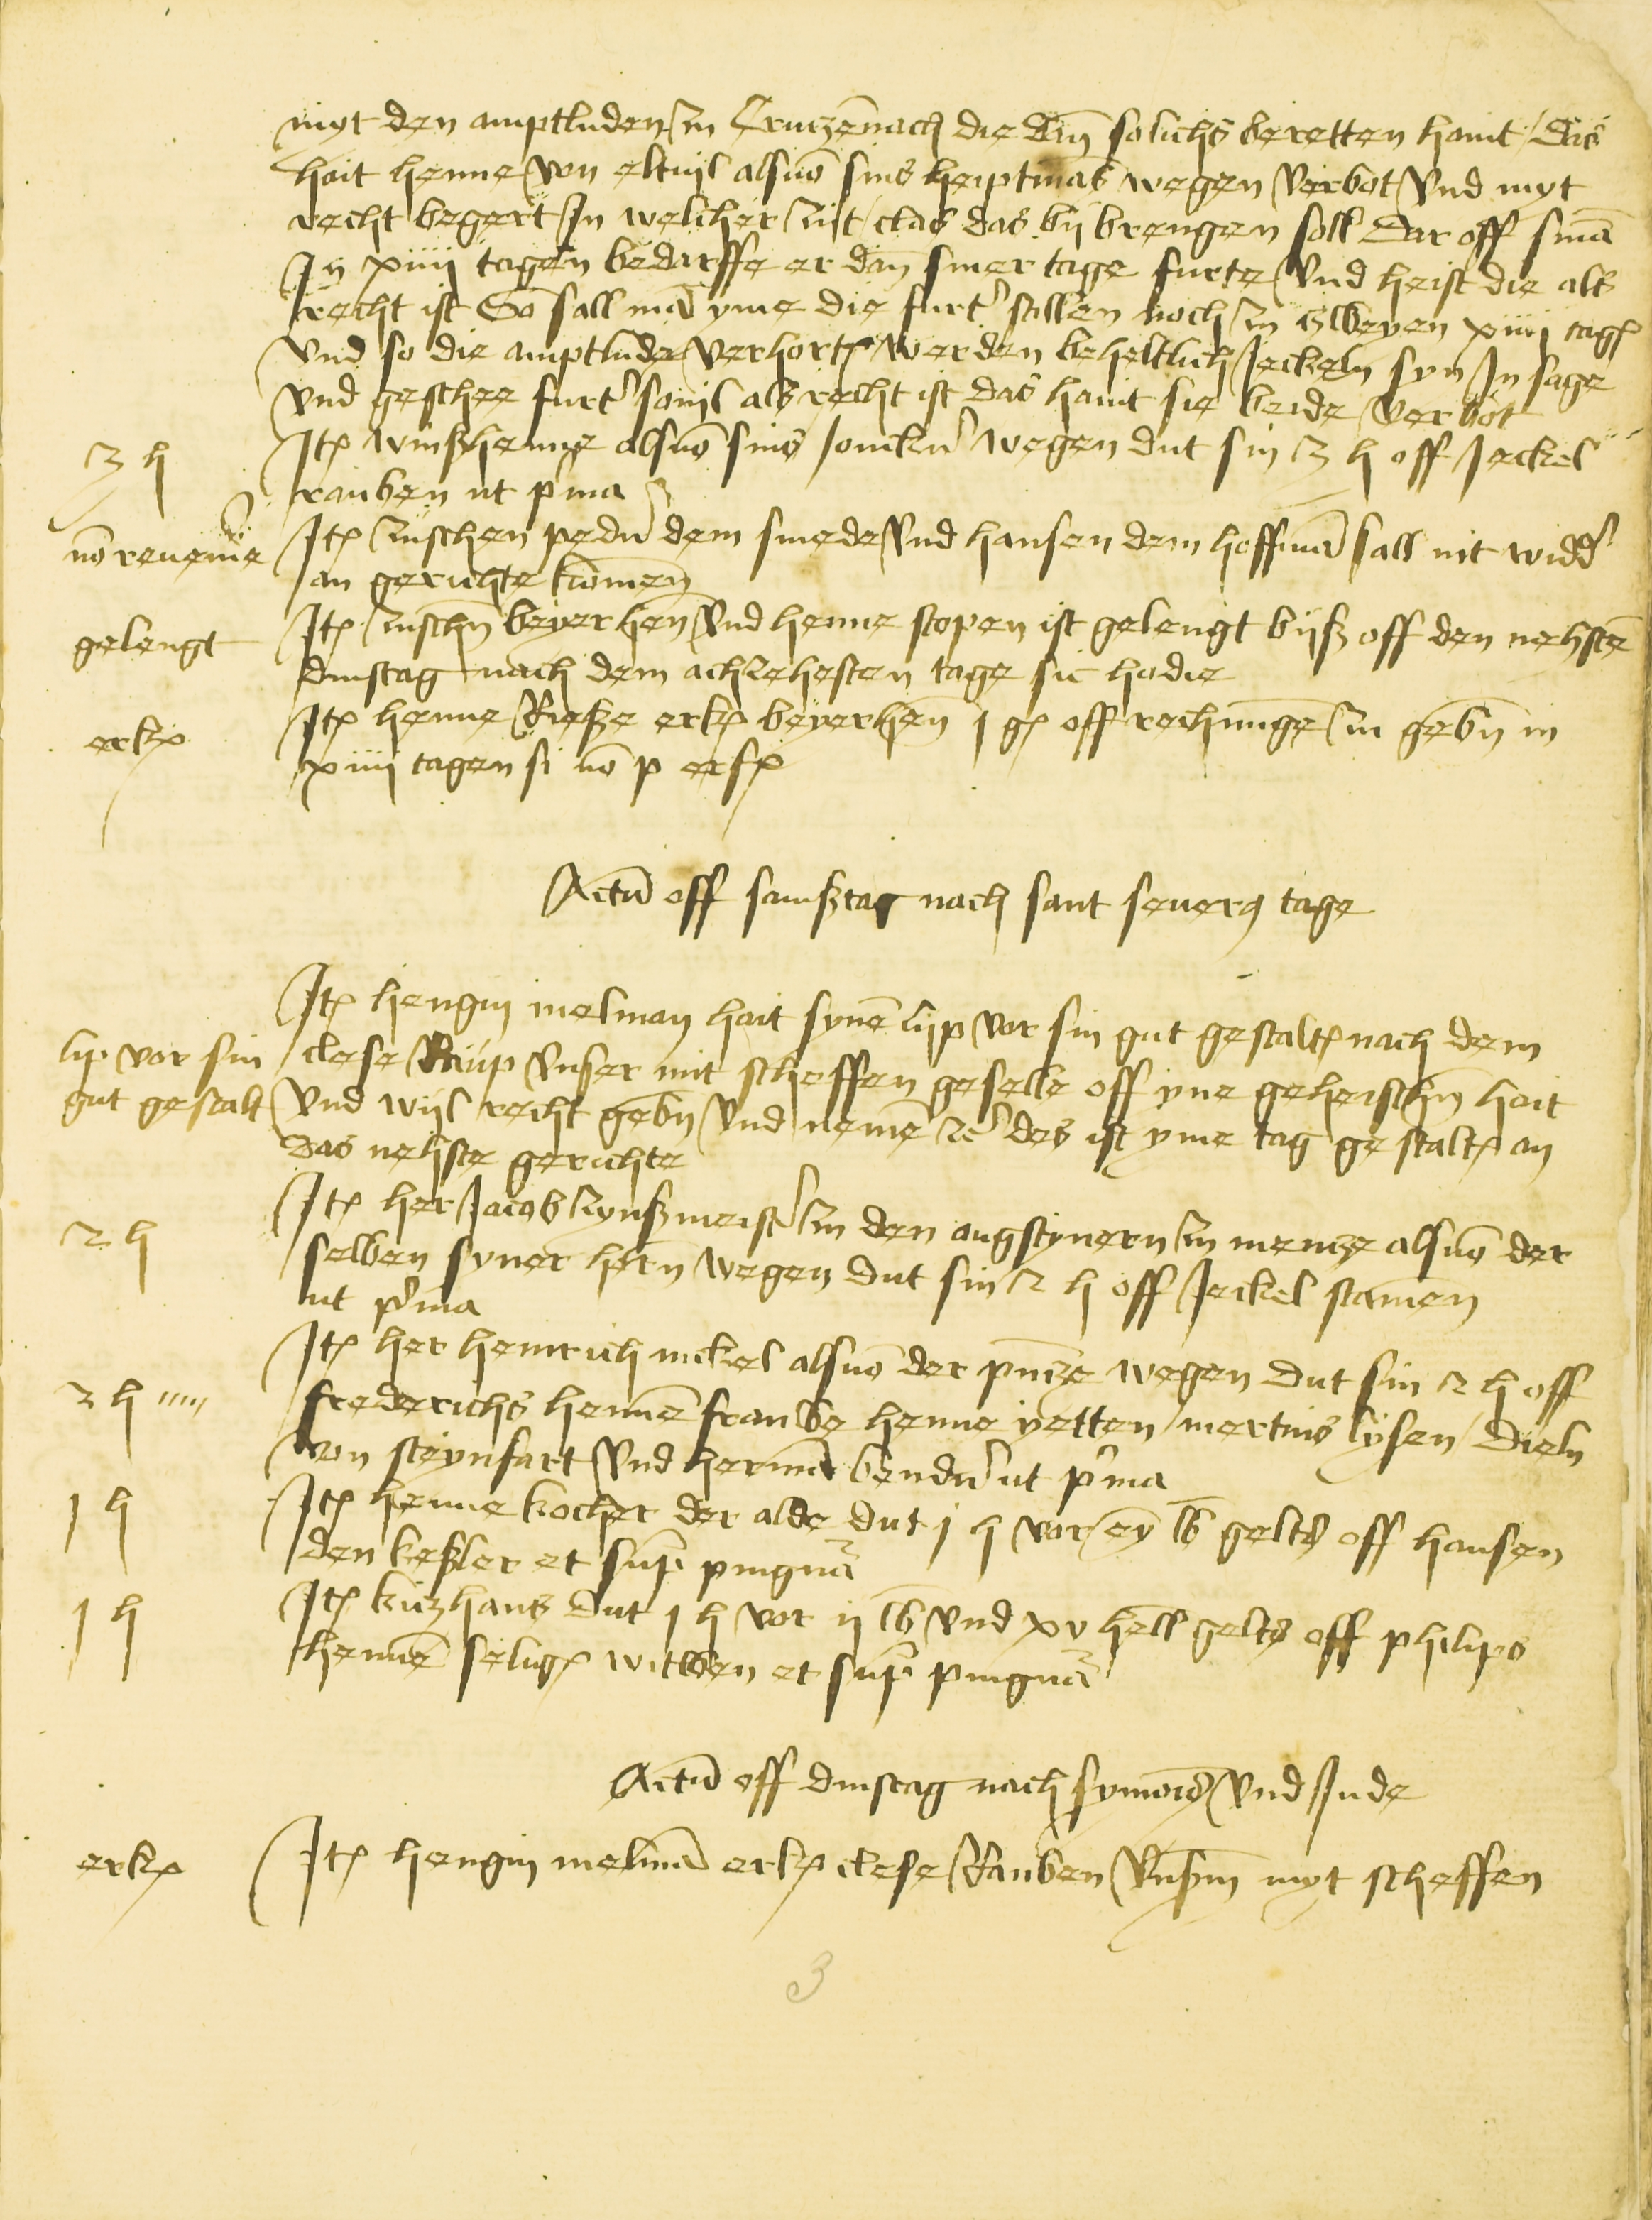 myt den amptluden zu Cruczenach die dan solichs beretten haint / Das
hait henne von eltuil als von sins heiptmans wegen verbot vnd myt
recht begert Jn welcher zijt / clas das bij brengen soll Dar off sin̄a
Jn xiiij tagen bedarffe er dan siner tage furte vnd heist die als
recht ist So sall man yme die furt' stellen noch zu zweyen xiiij tag
vnd so die amptlude verhort werden beheltlich Jeckeln syn Jnsage
vnd geschee furt' souil als recht ist das haint sie beide verbot
3 h
Jt winßhenne als von sins Jonckn̄ wegen dut sin 3 h off Jeckel
rauben ut p'ma
no reuenie
Jt zuschen peder dem smede vnd hansen dem hoffman sall nit widd'
an gerichte komen
gelengt
Jt zuschn̄ beyerhen̄ vnd henne stopen ist gelengt biß off den nehsten
dinstag nach dem achzehesten tage sic hodie
erk
Jt henne Rieße erk beyerhen̄ j g off rechnunge zu gebn̄ in
xiiij tagen si no p erf
Actu off samßtag nach sant seuer9 tage
lip vor sin
gut gestalt
Jt hengin melman hait synē lijp vor sin gut gestalt nach dem
clese Raup vnser mit scheffen geselle off yne geheischn̄ hait
vnd wijl recht gebn̄ vnd nemē zc des ist yme tag gestalt an
das nehste gerichte
2 h
Jt her Jacob zynßmeist' zu den augstynern zu mencze als von der
selben syner hern wegen dut sin 2 h off Jeckel stamen̄
ut p'ma
3 h ''''
Jt her heinrich nickel als von der p̄ncze wegen dut sin 2 h off
frederichs hennē frauwe henne yetten / mertins lysen / dieln
von steynfart vnd herman bender ut p'ma
j h
Jt henne kocher der alde dut j h vor eȳ lb gelts off hansen
den keßler et sup pingnā
j h
Jt kiczhans dut j h vor ij lb vnd xv hell gelts off philips
hennē selig witwen et sup pingnā
Actu off dinstag nach symonis vnd Jude
erk
Jt hengin melman erk clese Rauben vnßn̄ myt scheffen
3